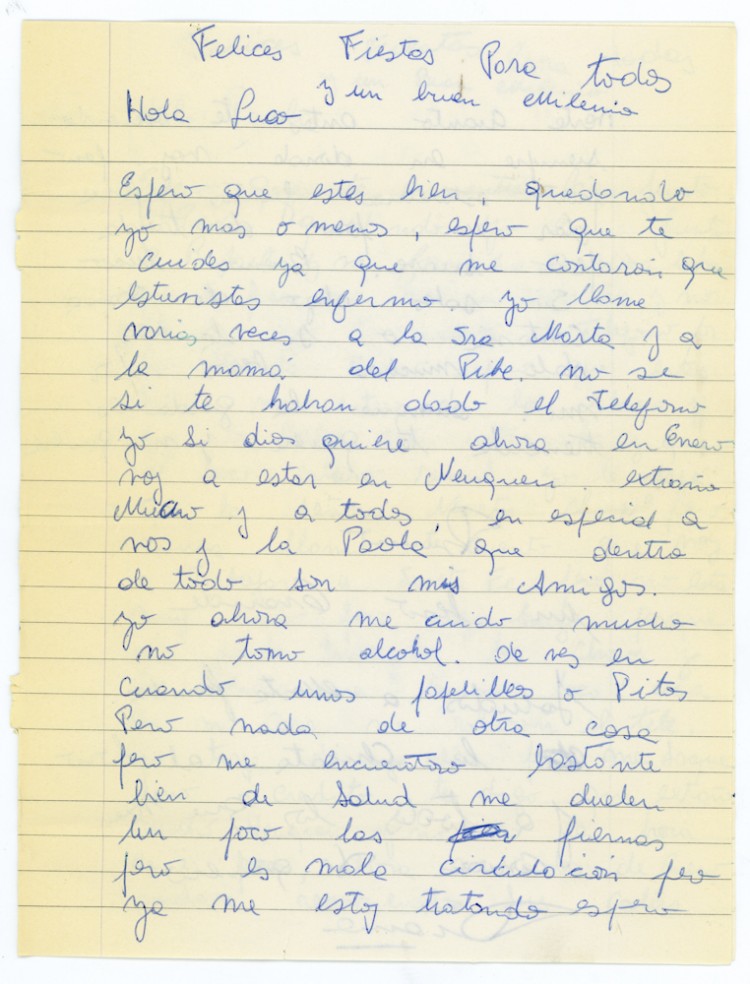 Felices Fiestas Para todos
y un buen Milenio
Hola Luco
Espero que estes bien, quedandolo
yo mas o menos, espero que te
cuides ya que me contaron que
estuvistes enfermo. yo llame
varias veces a la Sra Marta y a
la mamá del Pibe. no se
si te habran dado el telefono
yo si dios quiere ahora en Enero
voy a estar en Neuquen. extraño
Mucho y a todos, en especial a
vos y la Paola, que dentro
de todo son mis Amigos.
yo ahora me cuido mucho
no tomo alcohol. de vez en
cuando unos papelillos o Pitos
Pero nada de otra cosa
pero me encuentro bastante
bien de salud me duelen
un poco las piernas
pero es mala circulación pero
ya me estoy tratando espero